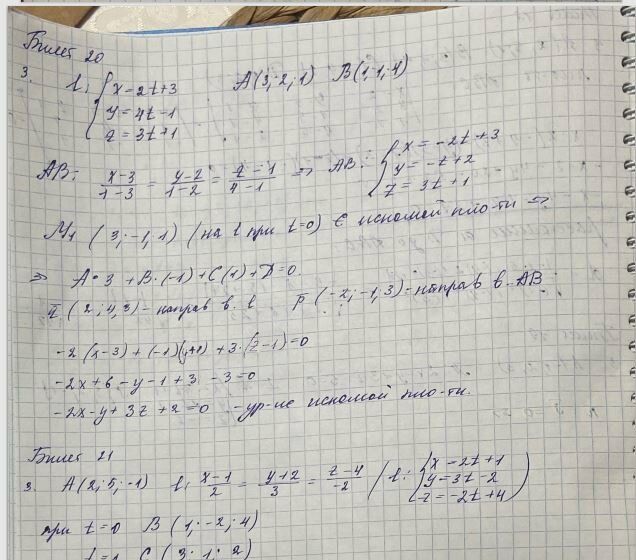 Билет 20
3. l: { x = 2t+3   A(3; 2; 1)   B(1; 1; 4)
y = 4t-1
z = 3t+1
AB: (x-3)/(1-3) = (y-2)/(1-2) = (z-1)/(4-1) => AB: { x = -2t+3
y = -t+2
z = 3t+1
M₁ (3; -1; 1) (на l при t=0) ∈ искомой пло-ти =>
=> A·3 + B·(-1) + C(1) + D = 0.
q̅ (2; 4; 3) - направ в. l   p̅ (-2; -1; 3) - направ в. AB
-2(x-3) + (-1)(y+1) + 3·(z-1) = 0
-2x+6-y-1+3 -3=0
-2x-y+3z+2=0 - ур-ие искомой пло-ти.
Билет 21
3. A(2; 5; -1)   l: (x-1)/2 = (y+2)/3 = (z-4)/-2 / l: { x = 2t+1
y = 3t-2
z = -2t+4 )
при t=0   B (1; -2; 4)
t=1   C (3; 1; 2)